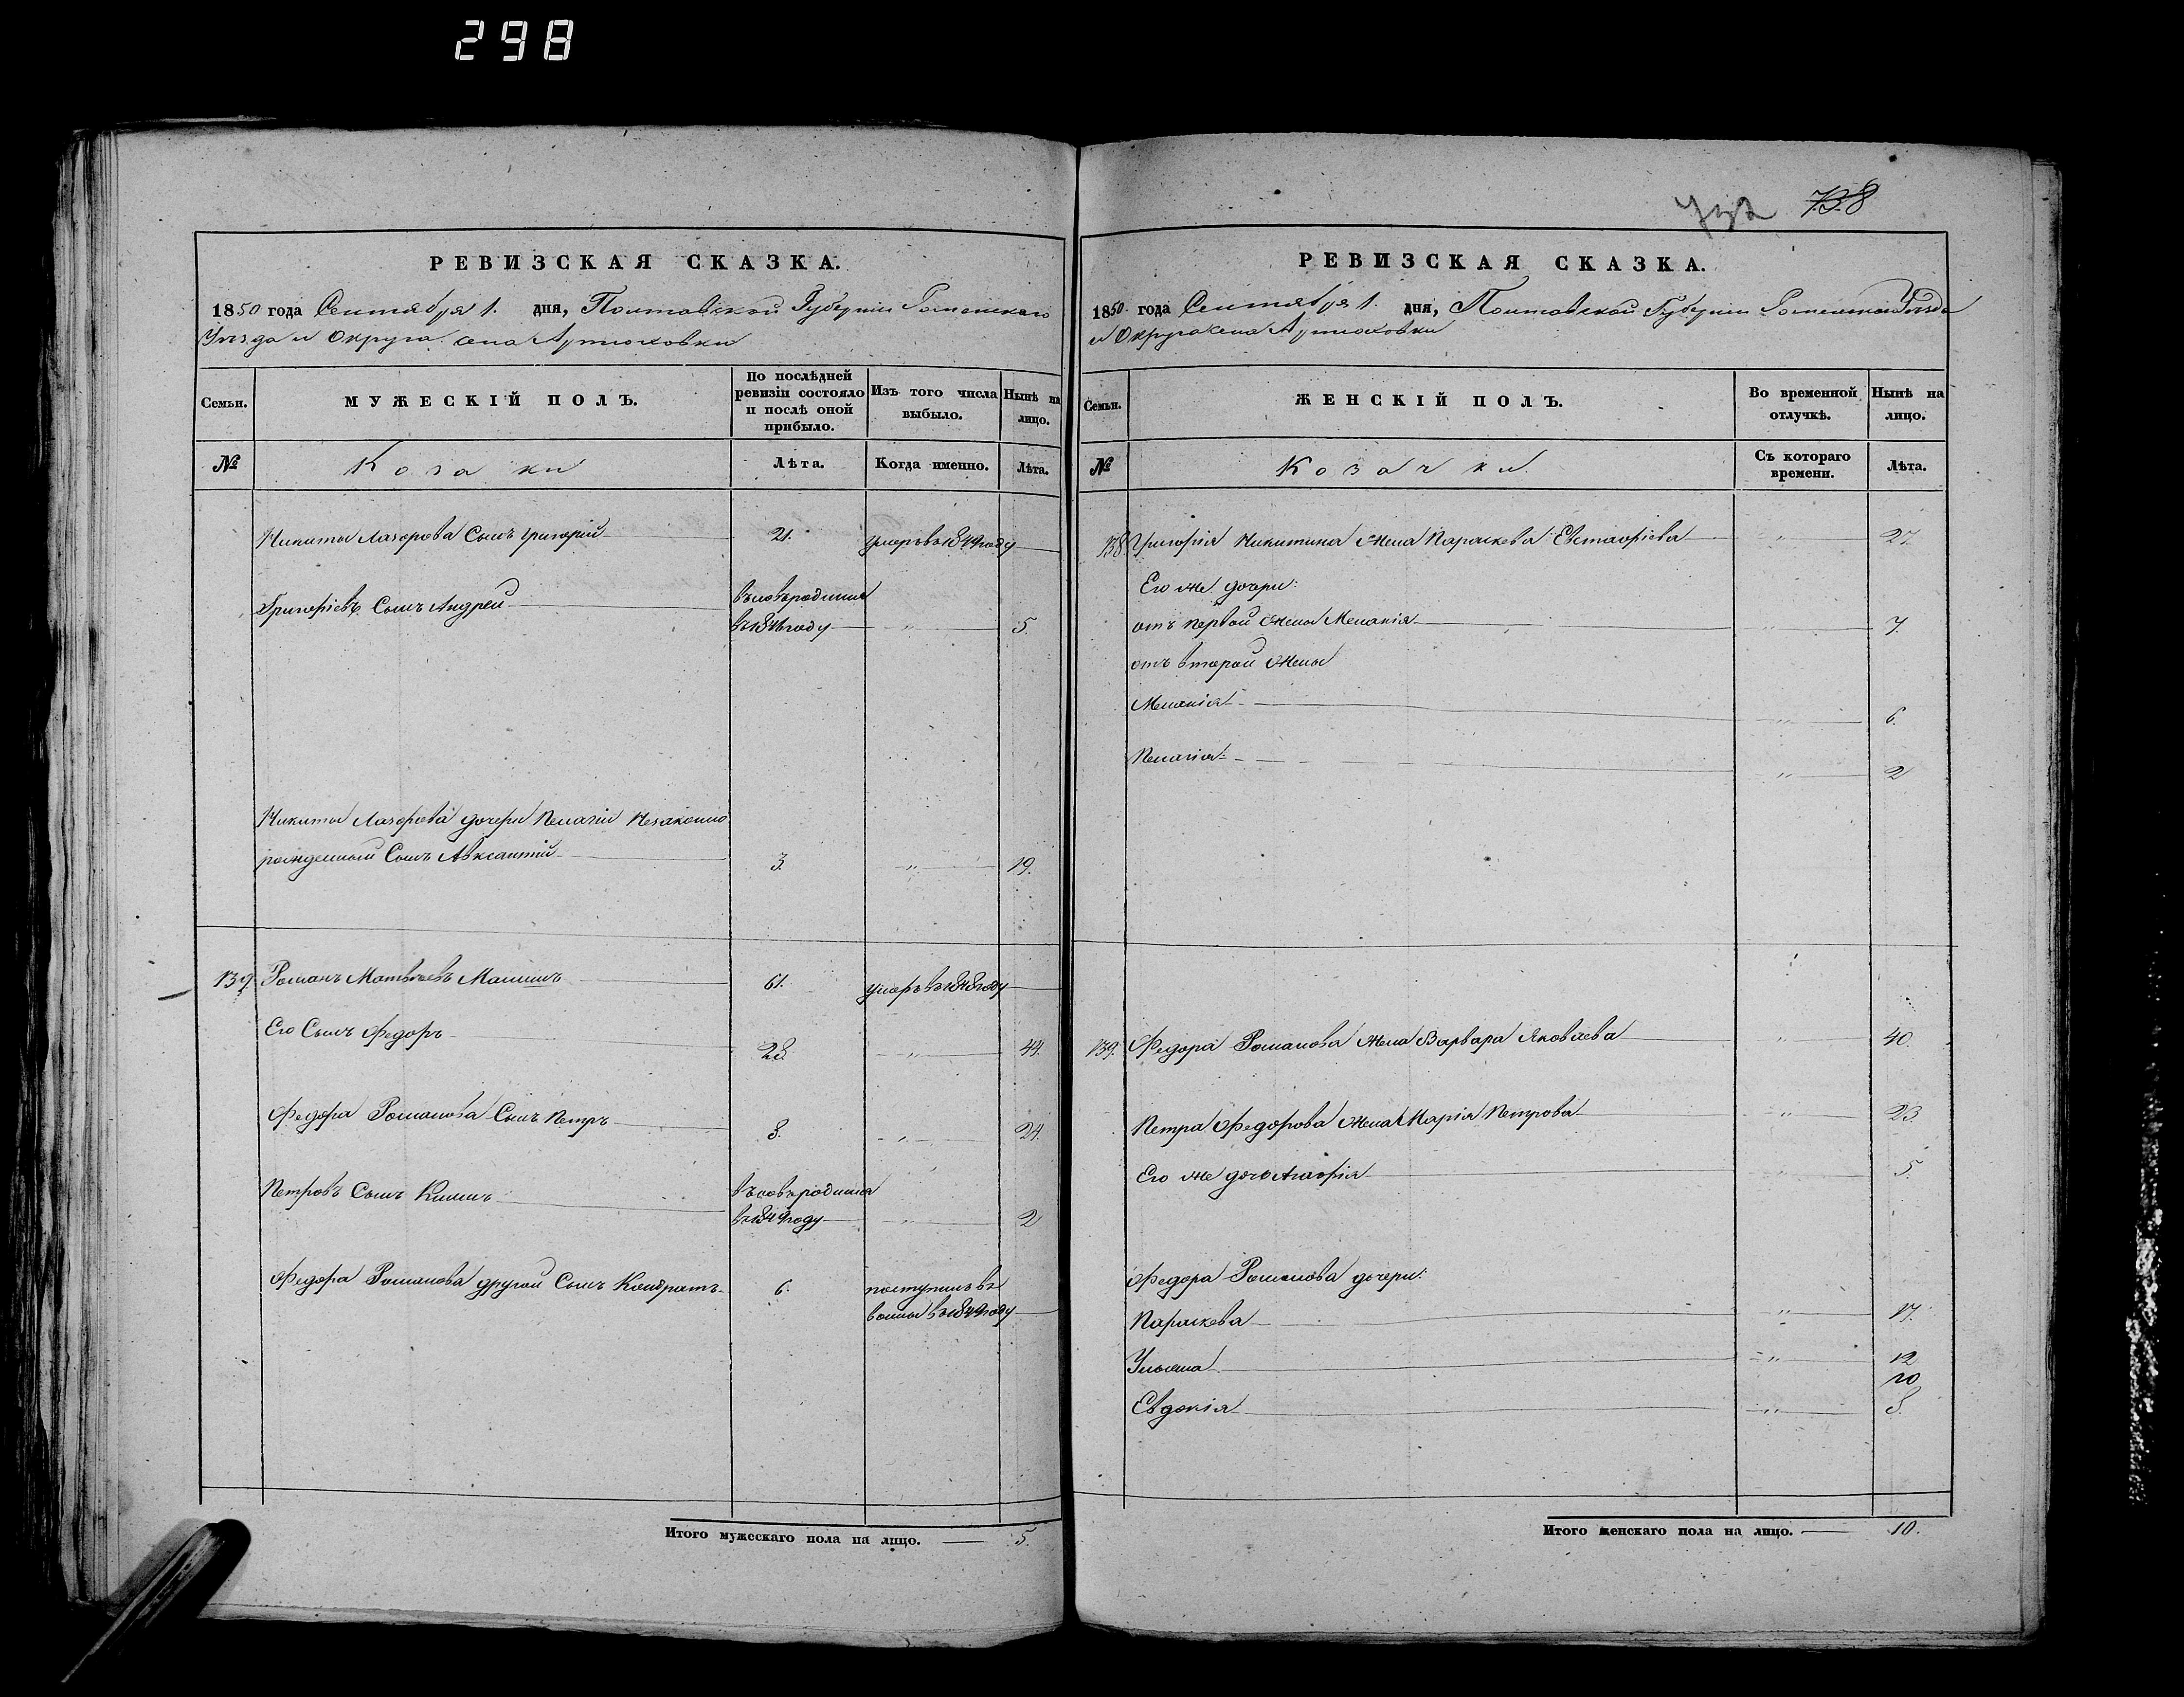 298
738
РЕВИЗСКАЯ СКАЗКА.
1850 года Сентября 1. дня, Полтавской Губерніи Роменскаго
Уѣзда и Округа села Артюховки
Семьи.
МУЖЕСКІЙ ПОЛЪ.
По послѣдней ревизіи состояло и послѣ оной прибыло.
Изъ того числа выбыло.
Нынѣ на лицо.
№
Козаки
Лѣта.
Когда именно.
Лѣта.
Никиты Лазорова Сынъ Григорій 21. умеръ въ 1849 году
Григоріевъ Сынъ Андрей вновь родился
въ 1846 году " 5.
Никиты Лазорева дочери Пелагіи Незаконно
рожденный Сынъ Авксантій 3. " 19.
139. Романъ Матвѣевъ 61. умеръ въ 1848 году
Его Сынъ Федоръ 28 " 44.
Федора Романова Сынъ Петръ 8. " 24.
Петровъ Сынъ Климъ вновь родился
въ 1849 году " 2
Федора Романова другой Сынъ Кондратъ 6. поступилъ въ
въ 1849 году
Итого мужескаго пола на лицо. 5.
РЕВИЗСКАЯ СКАЗКА.
1850 года Сентября 1. дня, Полтавской Губерніи Роменскаго Уѣзда
и Округа села Артюховки
Семьи.
ЖЕНСКІЙ ПОЛЪ.
Во временной отлучкѣ.
Нынѣ на лицо.
№
Козачки.
Съ котораго времени.
Лѣта.
138 Григорія Никитина жена Параскева Евстафіева " 27.
Его же дочери:
отъ первой жены Меланія " 7.
отъ второй жены
Меланія " 6.
Пелагія " 2
139. Федора Романова жена Варвара Яковлева " 40.
Петра Федорова жена Марія Петрова " 23.
Его же дочь Агафія " 5.
Федора Романова дочери:
Параскева " 17.
Ульяна " 12
10
Евдокія " 8.
Итого женскаго пола на лицо. 10.